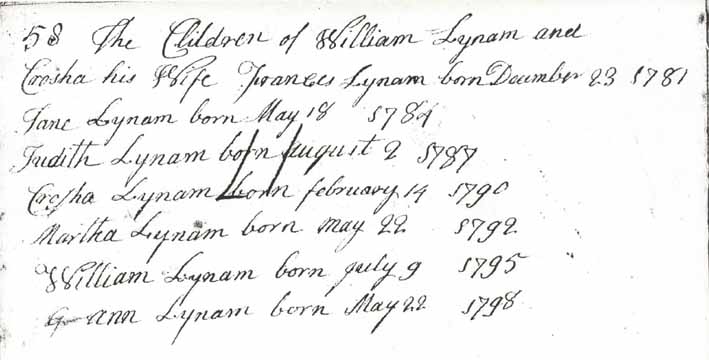 58 The Children of William Lynam and
Crosha his Wife Frances Lynam born December 23 1781
Jane Lynam born May 18 1784
Judith Lynam born August 2 1787
Crosha Lynam born february 14 1790
Martha Lynam born may 22 1792
William Lynam born july 9 1795
ann Lynam born May 22 1798